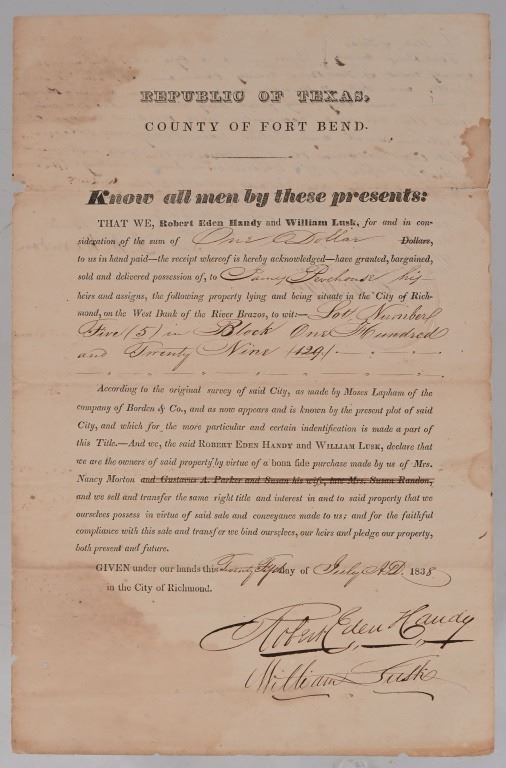 REPUBLIC OF TEXAS,
COUNTY OF FORT BEND.
Know all men by these presents:
THAT WE, Robert Eden Handy and William Lusk, for and in con-
sideration of the sum of One Dollar Dollars,
to us in hand paid—the receipt whereof is hereby acknowledged—have granted, bargained,
sold and delivered possession of, to his
heirs and assigns, the following property lying and being situate in the City of Rich-
mond, on the West Bank of the River Brazos, to wit:— Lot Number
Five (5) in Block One Hundred
and Twenty Nine (129)
According to the original survey of said City, as made by Moses Lapham of the
company of Borden & Co., and as now appears and is known by the present plot of said
City, and which for the more particular and certain indentification is made a part of
this Title.—And we, the said ROBERT EDEN HANDY and WILLIAM LUSK, declare that
we are the owners of said property by virtue of a bona fide purchase made by us of Mrs.
Nancy Morton and Gustavus A. Parker and Susan his wife, late Mrs. Susan Randon,
and we sell and transfer the same right title and interest in and to said property that we
ourselves possess in virtue of said sale and conveyance made to us; and for the faithful
compliance with this sale and transfer we bind ourselves, our heirs and pledge our property,
both present and future.
GIVEN under our hands this Twenty day of July A.D. 1838
in the City of Richmond.
Robert Eden Handy
William Lusk